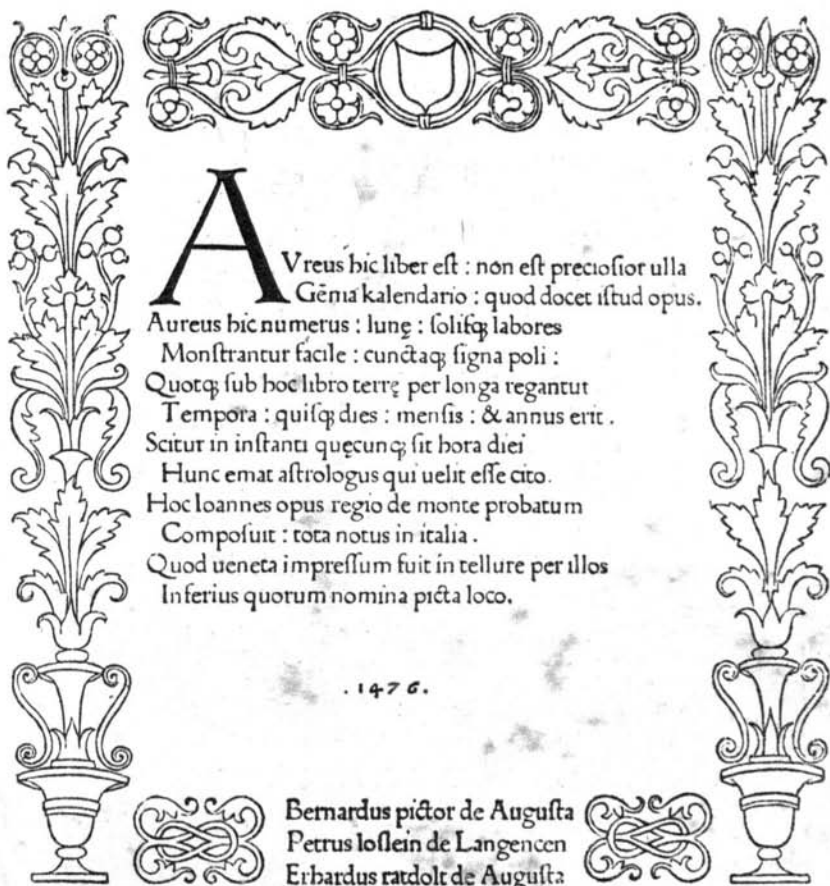 AVreus hic liber eſt : non eſt precioſior ulla
Gēma kalendario : quod docet iſtud opus.
Aureus hic numerus : lunę : ſoliſqꝫ labores
Monſtrantur facile : cunctaqꝫ ſigna poli :
Quotqꝫ ſub hoc libro terrę per longa regantur
Tempora : quiſqꝫ dies : menſis : & annus erit .
Scitur in inſtanti quęcunqꝫ ſit hora diei
Hunc emat aſtrologus qui uelit eſſe cito.
Hoc Ioannes opus regio de monte probatum
Compoſuit : tota notus in italia .
Quod ueneta impreſſum fuit in tellure per illos
Inferius quorum nomina picta loco.
. 1476 .
Bernardus pictor de Auguſta
Petrus loſlein de Langencen
Erhardus ratdolt de Auguſta